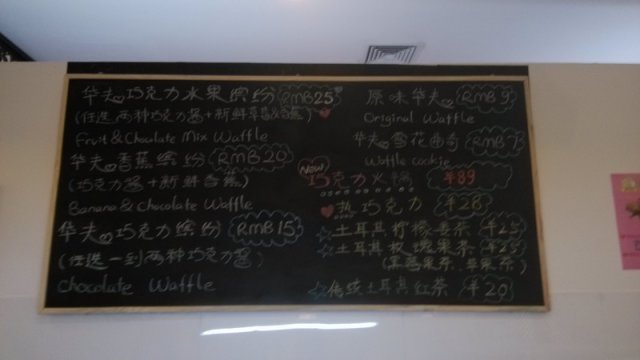 华夫 巧克力水果缤纷 RMB25
(任选两种巧克力酱+新鲜草莓&香蕉)
Fruit & Chocolate Mix Waffle
华夫 香蕉缤纷 RMB20
(巧克力酱+新鲜香蕉)
Banana & Chocolate Waffle
华夫 巧克力缤纷 RMB15
(任选一到两种巧克力酱)
Chocolate Waffle
原味华夫 RMB9
Original Waffle
华夫 雪花曲奇 RMB7
Waffle cookie
New 巧克力火锅 ¥89
热巧克力 ¥28
土耳其柠檬姜茶 ¥25
土耳其玫瑰果茶 ¥25
苹果茶)
传统土耳其红茶 ¥20